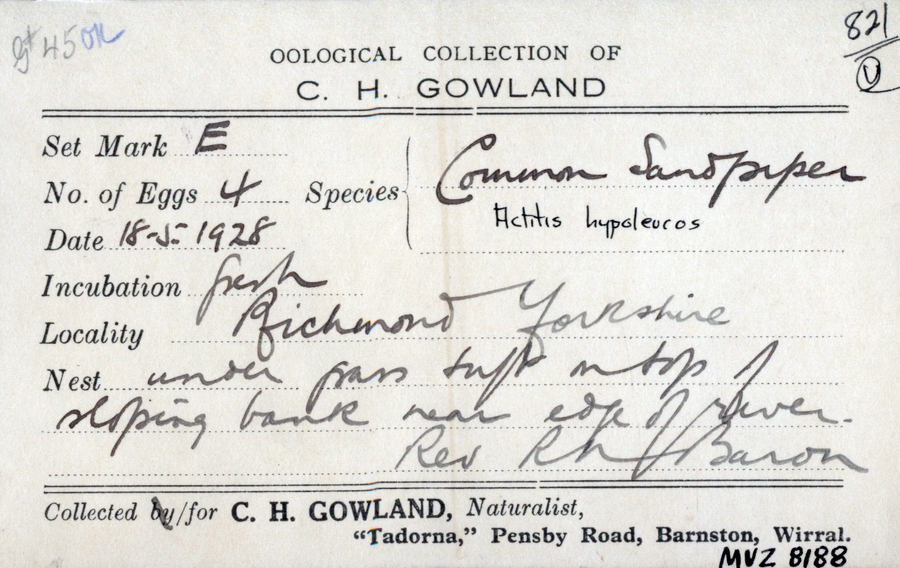 gt 45 OK
821
U
OOLOGICAL COLLECTION OF
C. H. GOWLAND
Set Mark E
No. of Eggs 4 Species Common Sandpiper
Actitis hypoleucos
Date 18-5-1928
Incubation fresh
Locality Richmond Yorkshire
Nest under grass tuft on top of
sloping bank near edge of river.
Rev Baron
Collected by/for C. H. GOWLAND, Naturalist,
“Tadorna,” Pensby Road, Barnston, Wirral.
MVZ 8188